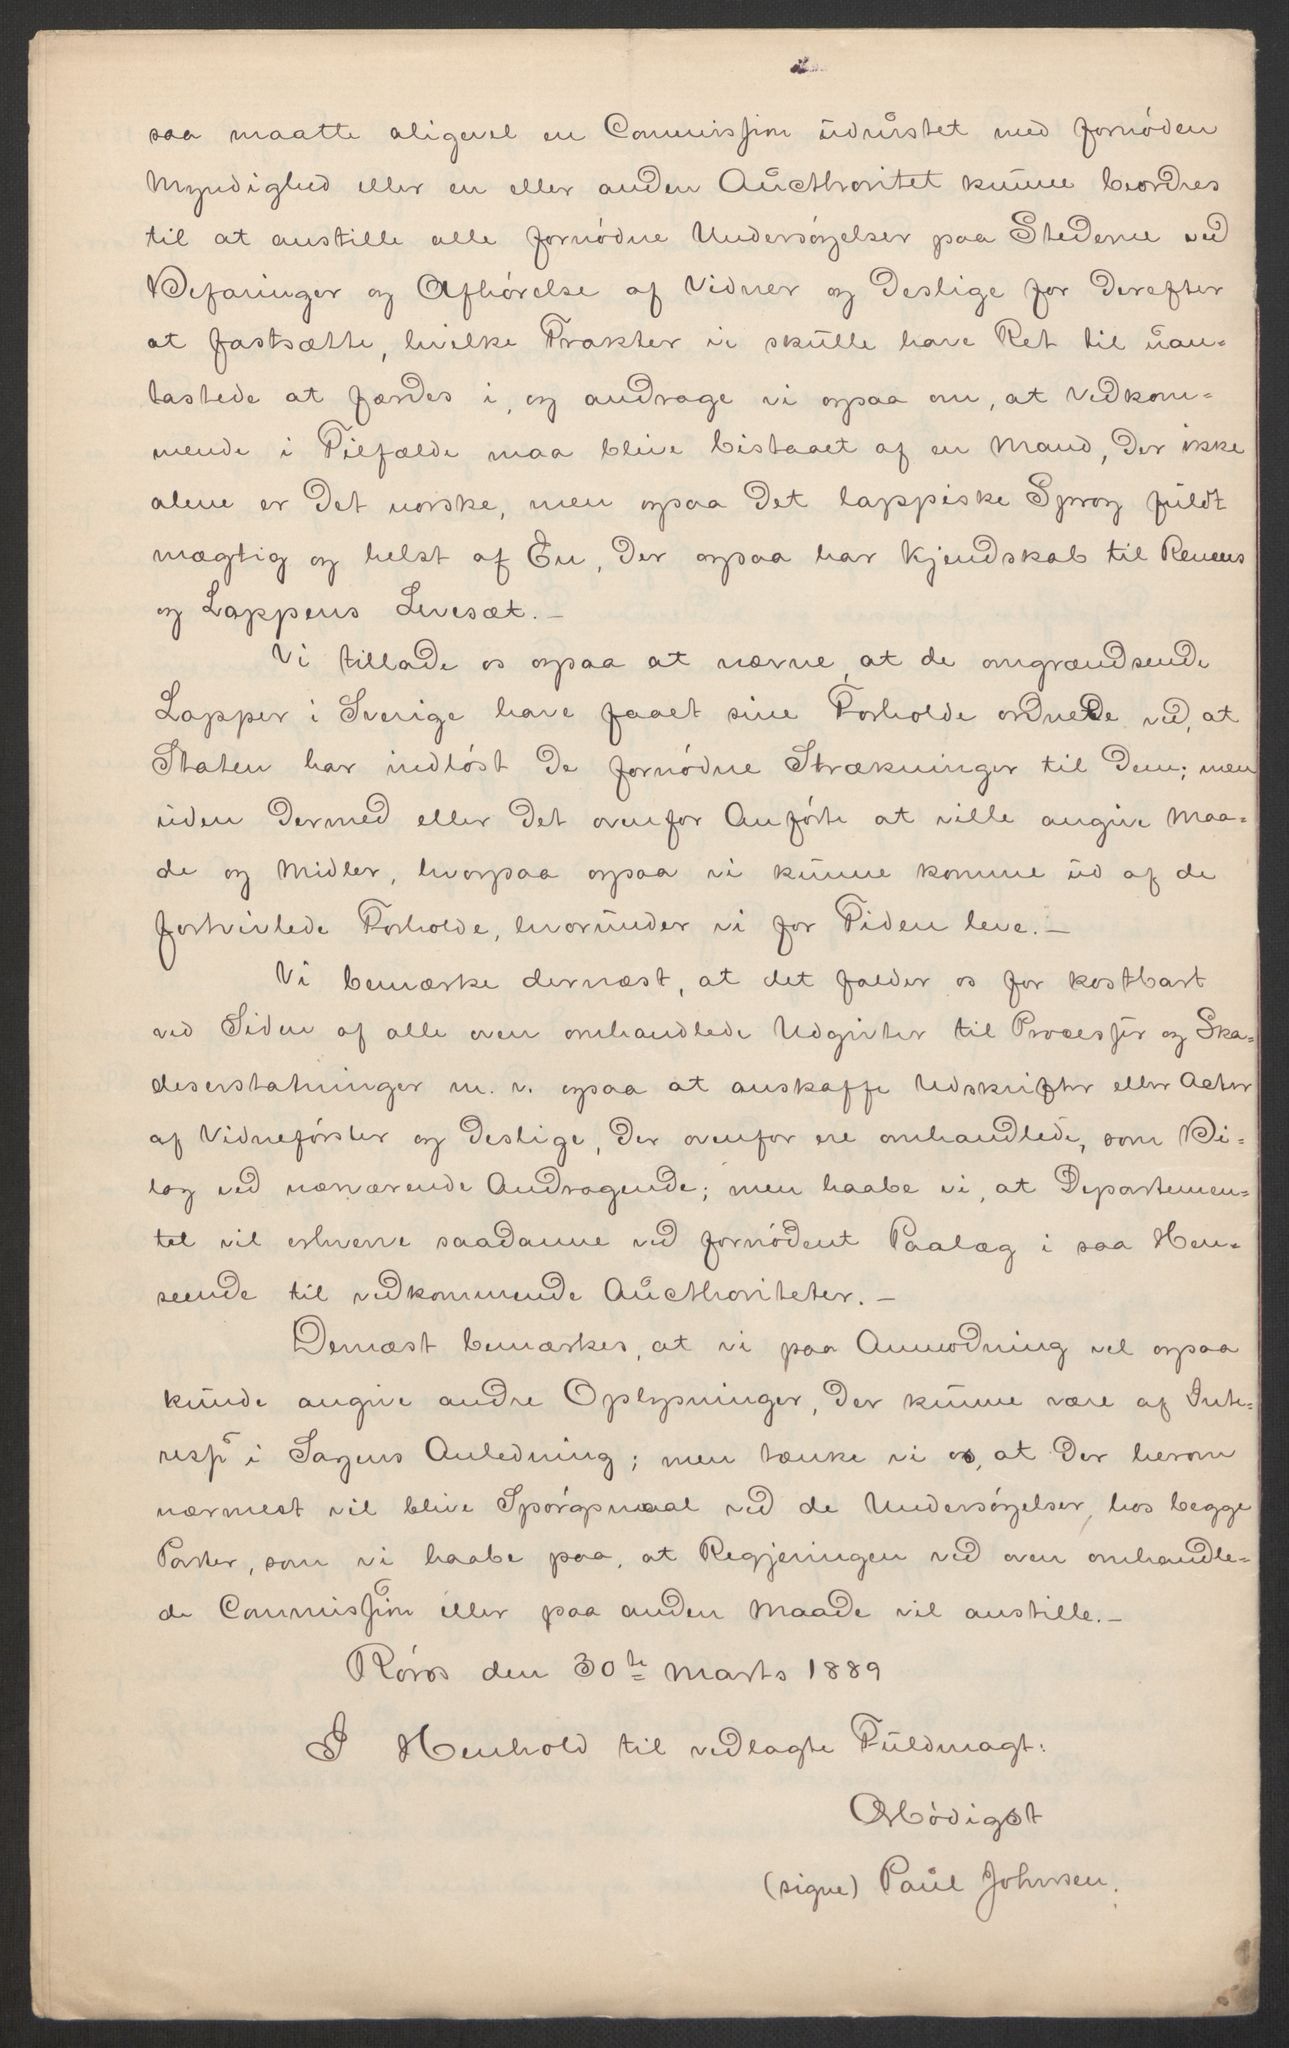 saa maatte aligevel en Commission udrustet med fornøden
Myndighed eller en eller anden Aucthoritet kunne beordres
til at anstille alle fornødne Undersøgelser paa Stederne ved
Befaringer og Afhørelse af Vidner og Deslige for Derefter
at fastsætte, hvilke Trakter vi skulle have Ret til uan-
tastede at færdes i, og andrage vi ogsaa om, at Vedkom-
mende i Tilfælde maa blive bistaaet af en Mand, Der ikke
alene er Det norske, men ogsaa Det lappiske Sprog fuldt
mægtig og helst af En, Der ogsaa har Kjendskab til Renens
og Lappens Levesæt.-
Vi tillade os ogsaa at nævne, at de omgrændsende
Lapper i Sverige have faaet sine Forholde ordnede ved, at
Staten har indløst De fornødne Strækninger til Dem; men
uden Dermed eller Det ovenfor Anførte at ville angive Maa-
de og Midler, hvorpaa ogsaa vi kunne komme ud af de
fortvivlede Forholde, hvorunder vi for Tiden leve.-
Vi bemærke dernæst, at det falder os for kostbart
ved Siden af alle oven omhandlede Udgivter til Processer og Ska-
deserstatninger m. v. ogsaa at anskaffe Udskrifter eller Acter
af Vidneførsler og Deslige, Der ovenfor ere omhandlede, som Bi-
lag ved nærværende Andragende; men haabe vi, at Departemen-
tet vil erhverve saadanne ved fornødent Paalæg i saa Hen-
seende til vedkommende Aucthoriteter.-
Dernæst bemærkes, at vi paa Anmodning vel ogsaa
kunde angive andre Oplysninger, Der kunne være af Inte-
resse i Sagens Anledning; men tænke vi os, at Der herom
nærmest vil blive Spørgsmaal ved de Undersøgelser, hos begge
Parter, som vi haabe paa, at Regjeringen ved oven omhandle-
de Commission eller paa anden Maade vil anstille.-
Røros den 30te Marts 1889
I Henhold til vedlagte Fuldmagt:
Ærbødigst
(signe) Paul Johnsen.